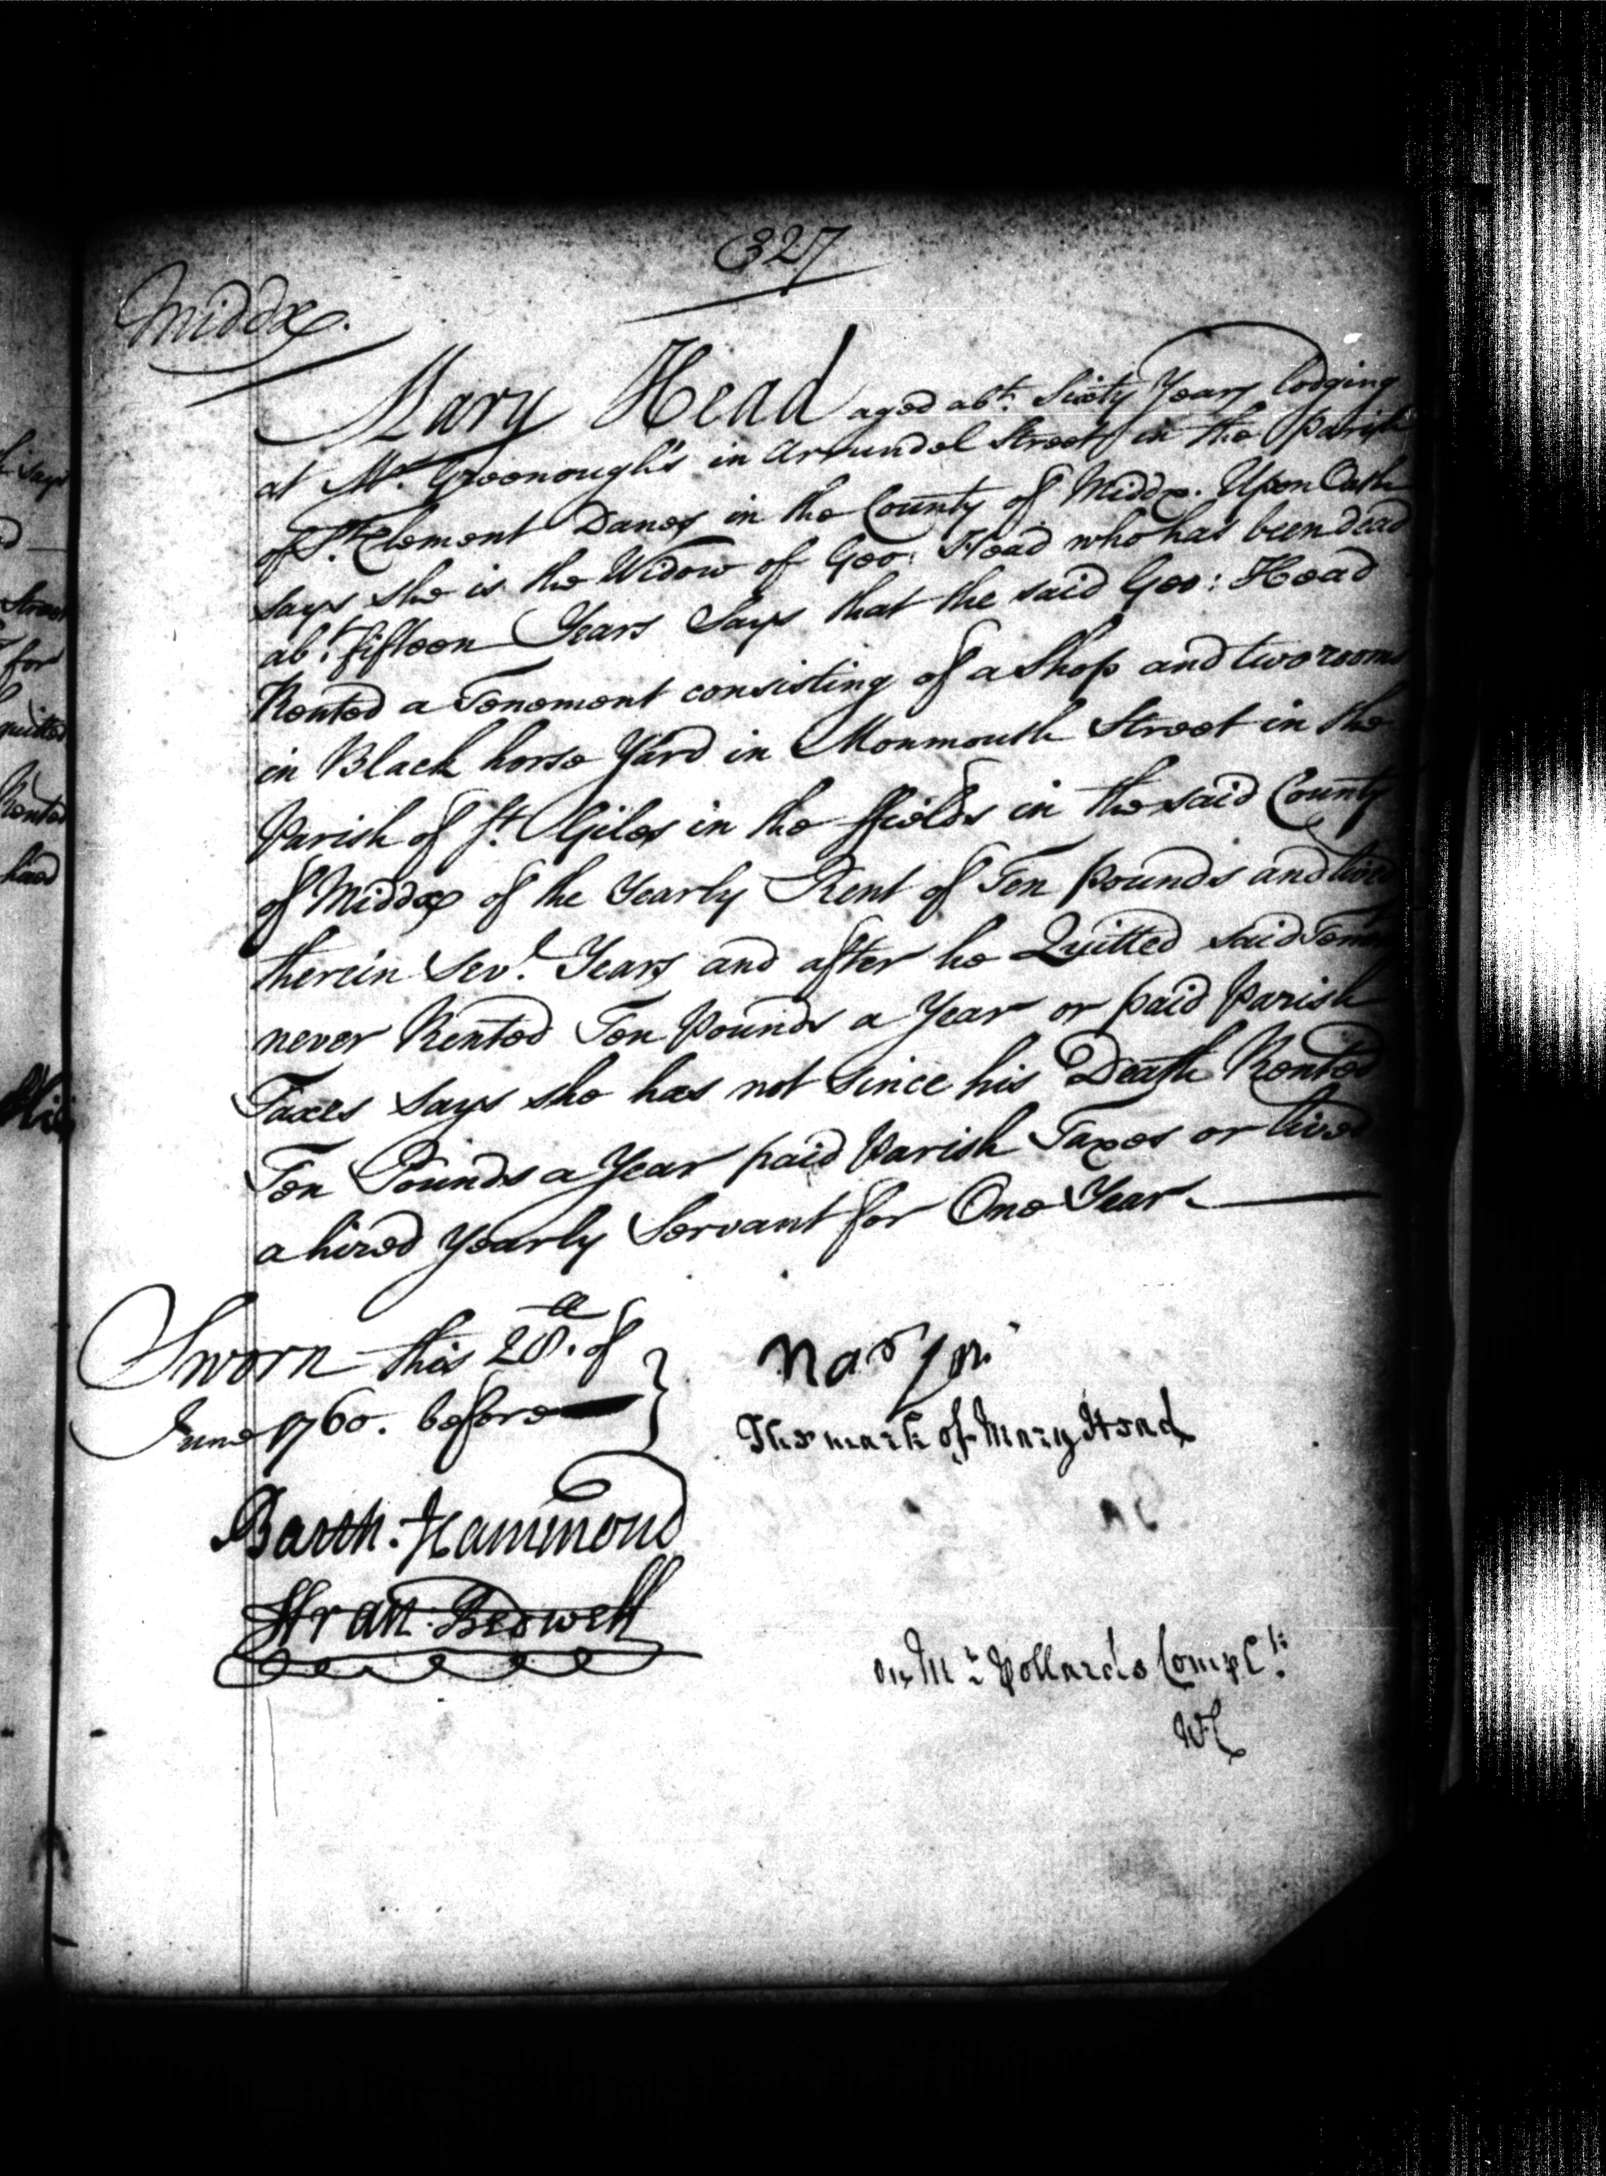 327
Middx.
Mary Head aged abt. Sixty Years lodging
at Mr. Greenough's in Arundel Street in the Parish
of St. Clement Danes in the County of Middx. Upon Oath
says she is the Widow of Geo: Head who has been dead
abt. fifteen Years Says that the said Geo: Head
Rented a Tenement consisting of a Shop and two rooms
in Black horse Yard in Monmouth Street in the
Parish of St. Giles in the ffields in the said County
of Middx of the Yearly Rent of Ten pounds and lived
therein Sevl. Years and after he Quitted said Temt
never Rented Ten Pounds a Year or paid Parish
Taxes says she has not Since his Death Rented
Ten Pounds a Year paid Parish Taxes or lived
a hired Yearly Servant for One Year
Sworn this 28th. of
June 1760. before
The mark of Mary Head
Barth. Hammond
Stran: Bedwell
on Mr. Pollards Complt.